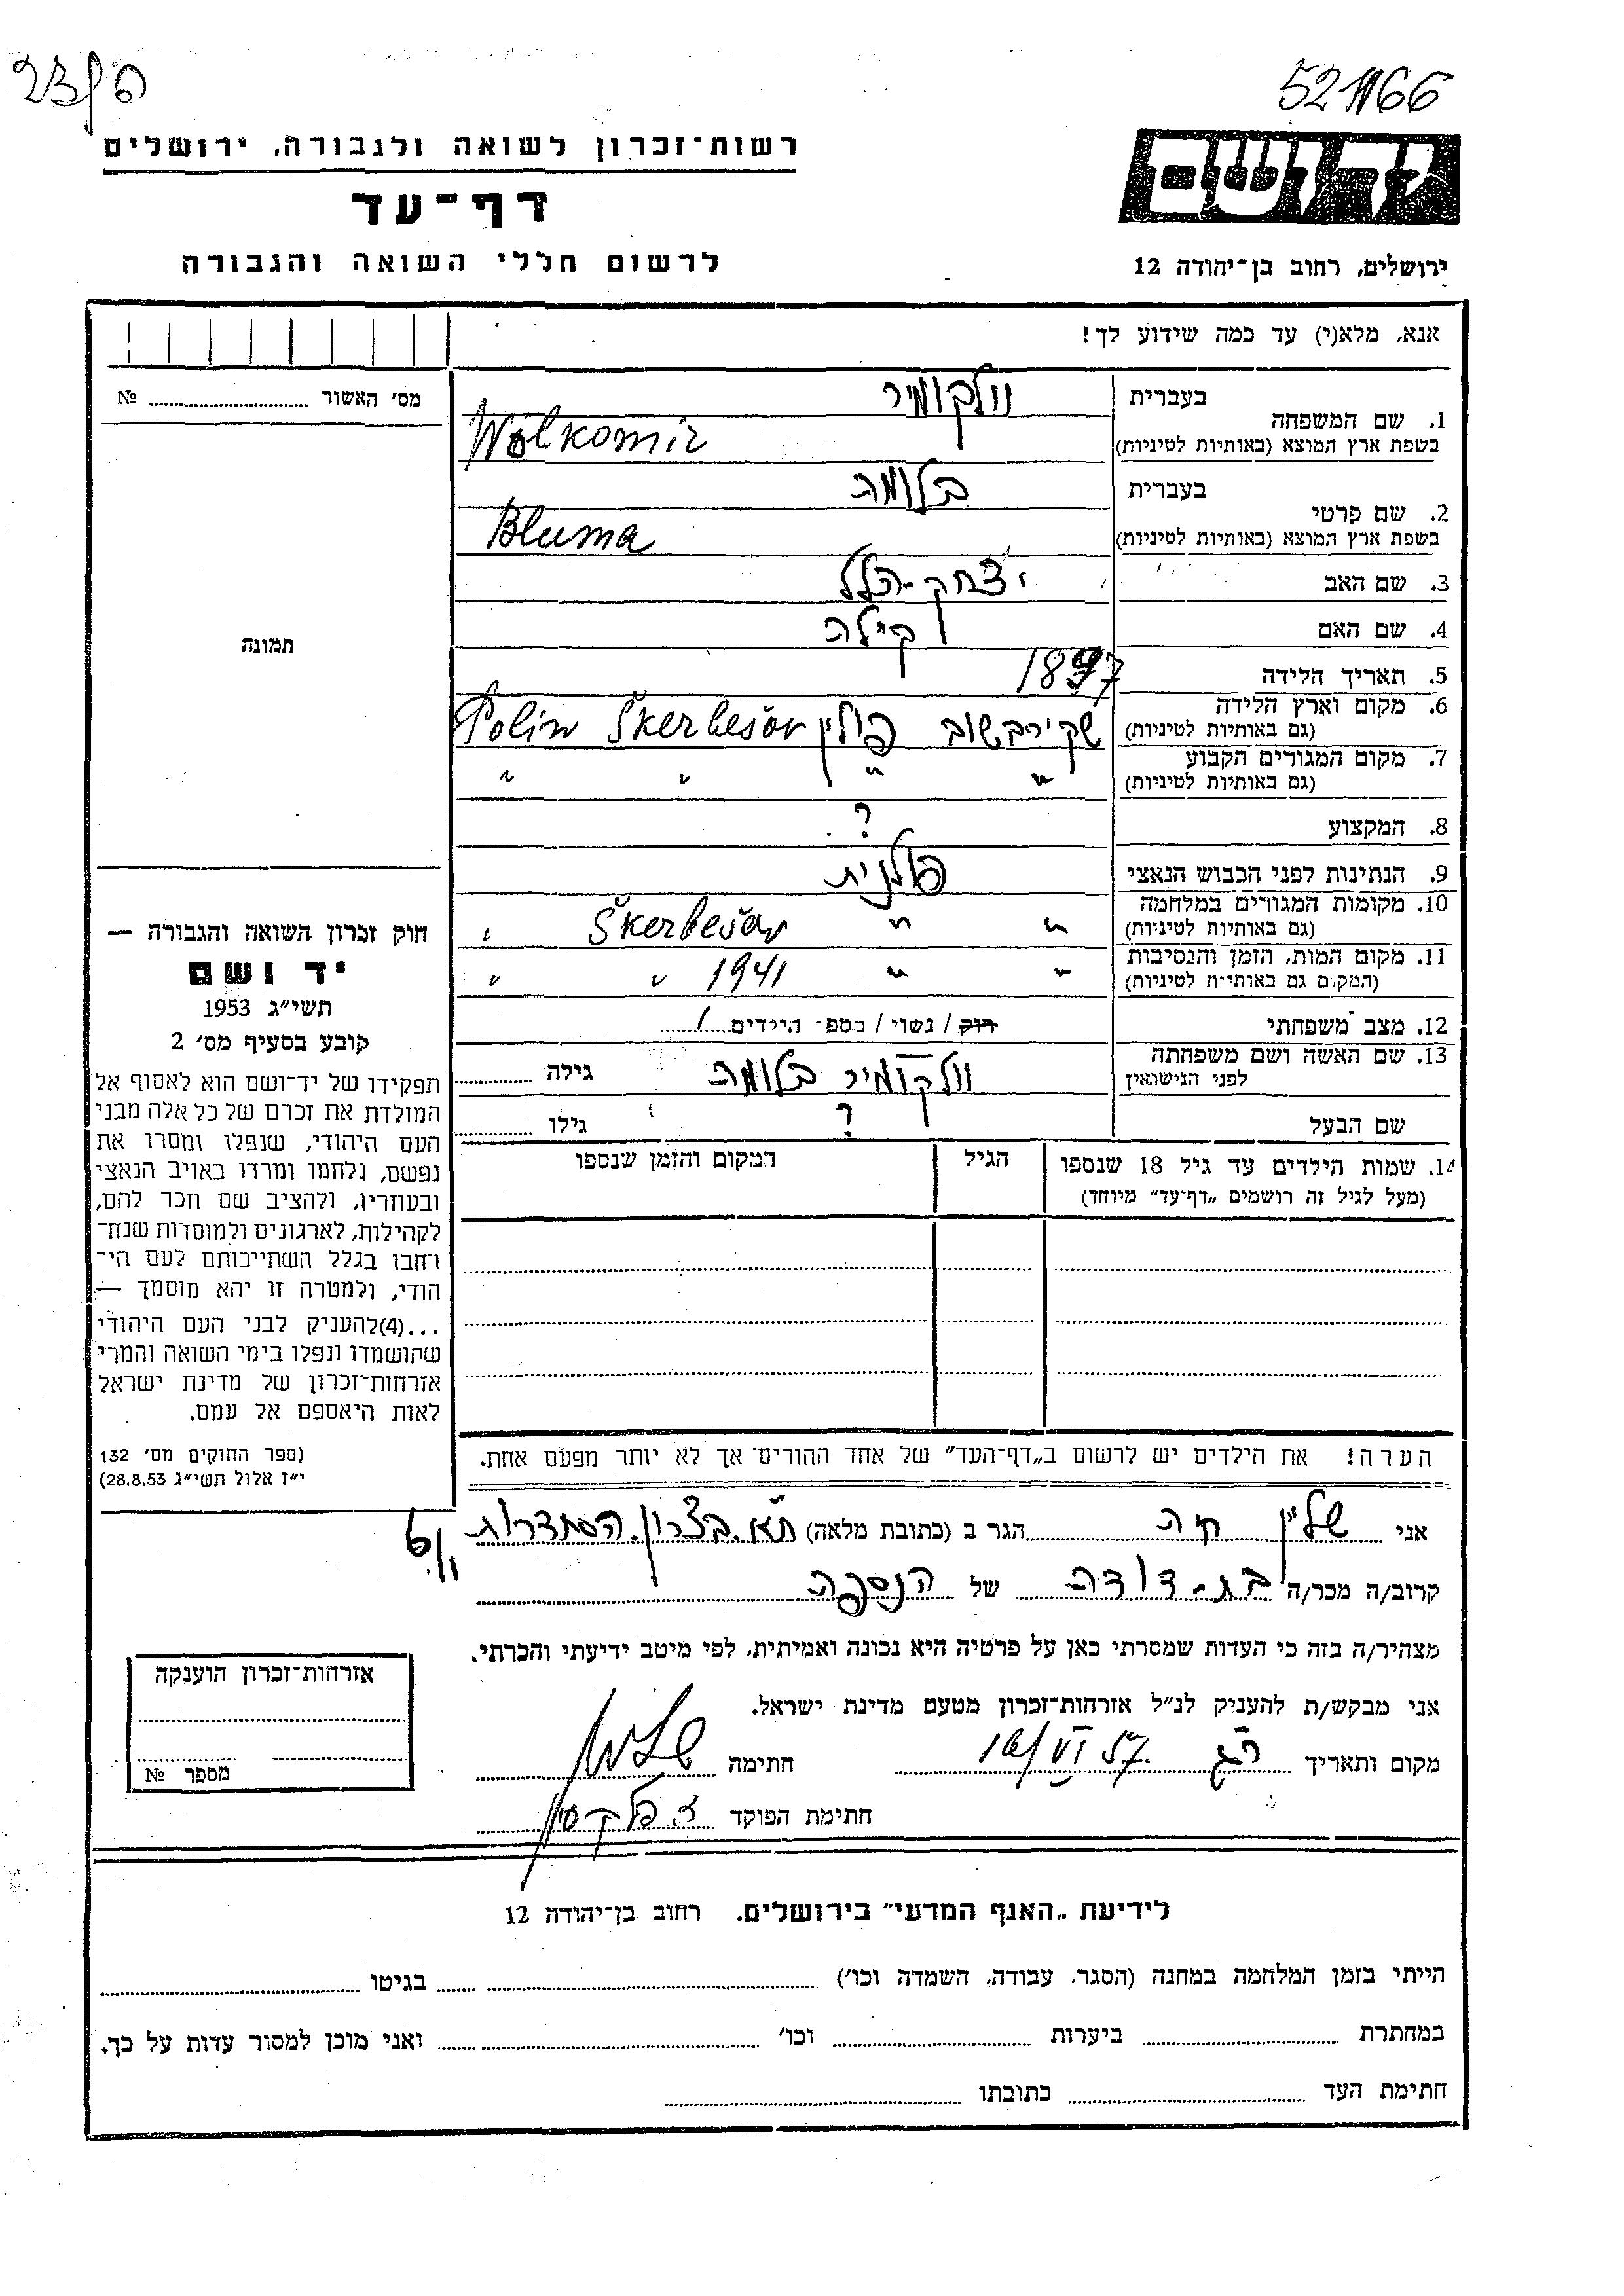 52166
23/ס
יד ושם
רשות-זכרון לשואה ולגבורה, ירושלים
דף-עד
ירושלים, רחוב בן-יהודה 12
לרשום חללי השואה והגבורה
אנא, מלא(י) עד כמה שידוע לך!
מס' האשור № 
תמונה
בעברית וולקומיר
1. שם המשפחה
בשפת ארץ המוצא (באותיות לטיניות) Wolkomir
בעברית בלומה
2. שם פרטי
בשפת ארץ המוצא (באותיות לטיניות) Bluma
3. שם האב יצחק-הלל
4. שם האם קילה
5. תאריך הלידה 1897
6. מקום וארץ הלידה
(גם באותיות לטיניות) שקירבשוב פולין Polin Škerbešov
7. מקום המגורים הקבוע
(גם באותיות לטיניות) " " " "
8. המקצוע ?
9. הנתינות לפני הכבוש הנאצי פולנית
10. מקומות המגורים במלחמה
(גם באותיות לטיניות) " " Škerbešov "
11. מקום המות, הזמן והנסיבות
(המקום גם באותיות לטיניות) " " 1941 " "
12. מצב משפחתי רוק / נשוי / מספר הילדים 1
13. שם האשה ושם משפחתה
לפני הנישואין וולקומיר בלומה גילה
שם הבעל ? גילו
14. שמות הילדים עד גיל 18 שנספו הגיל המקום והזמן שנספו
(מעל לגיל זה רושמים „דף-עד" מיוחד)
חוק זכרון השואה והגבורה —
יד ושם
תשי"ג 1953
קובע בסעיף מס' 2
תפקידו של יד-ושם הוא לאסוף אל
המולדת את זכרם של כל אלה מבני
העם היהודי, שנפלו ומסרו את
נפשם, נלחמו ומרדו באויב הנאצי
ובעוזריו, ולהציב שם וזכר להם,
לקהילות, לארגונים ולמוסדות שנח-
רחבו בגלל השתייכותם לעם הי-
הודי, ולמטרה זו יהא מוסמך —
...(4)להעניק לבני העם היהודי
שהושמדו ונפלו בימי השואה והמרי
אזרחות-זכרון של מדינת ישראל
לאות היאספם אל עמם.
(ספר החוקים מס' 132
י"ז אלול תשי"ג 28.8.53)
הערה! את הילדים יש לרשום ב„דף-העד" של אחד ההורים אך לא יותר מפעם אחת.
אני שליין חיה הגר ב (כתובת מלאה) ת"א. בצרון. הסתדרות
קרוב/ה מכר/ה בת-דודה של הנספה
מצהיר/ה בזה כי העדות שמסרתי כאן על פרטיה היא נכונה ואמיתית, לפי מיטב ידיעתי והכרתי.
אני מבקש/ת להעניק לנ"ל אזרחות-זכרון מטעם מדינת ישראל.
מקום ותאריך 16/VI 57. חתימה
חתימת הפוקד
אזרחות-זכרון הוענקה
מספר №
לידיעת „האגף המדעי" בירושלים. רחוב בן-יהודה 12
הייתי בזמן המלחמה במחנה (הסגר, עבודה, השמדה וכו') בגיטו
במחתרת ביערות וכו' ואני מוכן למסור עדות על כך.
חתימת העד כתובתו